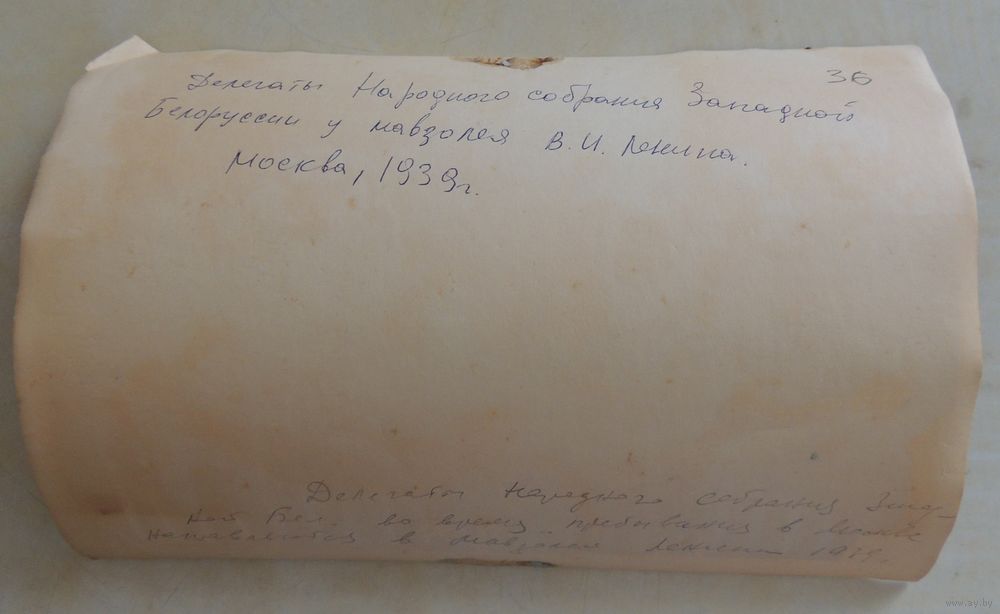 36
Делегаты Народного собрания Западной
Белоруссии у мавзолея В.И. Ленина.
Москва, 1939г.
Делегаты народного собрания Запад-
ной Бел. во время пребывания в Москве
направляются в мавзолей Ленина 1939г.
www.ay.by